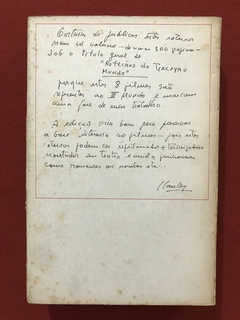 Gostaria de publicar estes roteiros
num só volume — de umas 300 páginas
sob o título geral de
"ROTEIROS DO TERCEYRO
MUNDO"
porque estes 8 filmes são
ao III Mundo e marcam
uma fase de meu trabalho.
A edição seria boa para
a base literária ao — pois estes
roteiros podem ser refilmados e
montados em teatro e ainda funcionam
como romances ou novelas etc.